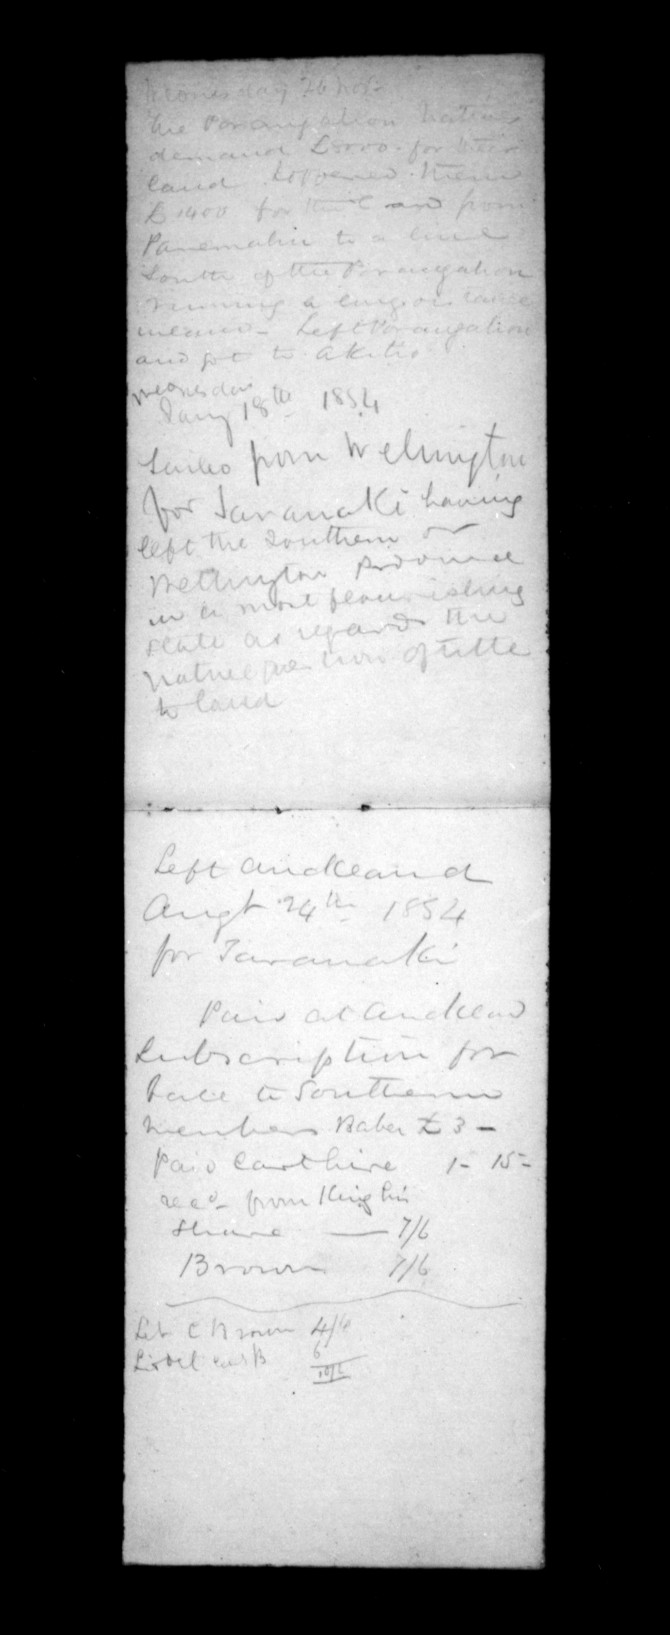 Wednesday 26 Novr
The Porangahau Natives
demand £5000 for their
land I offered them
£1400 for the land from
Parimahu to a line
South of the Porangahau
running a
means - Left Porangahau
and got to Akitio
Wednesday
Jany 18th 1854
Sailed from Wellington
for Taranaki having
left the Southern or
Wellington Province
in a most flourishing
state as regards the
native question of title
to land
Left Auckland
Augt 24th 1854
for Taranaki
Paid at Auckland
Subscription for
Ball to Southern
members Baber £3 -
Paid Cart hire 1 - 15 -
recd from King his
share — 7/6
Brown 7/6
C Brown 4/6
6
10/6